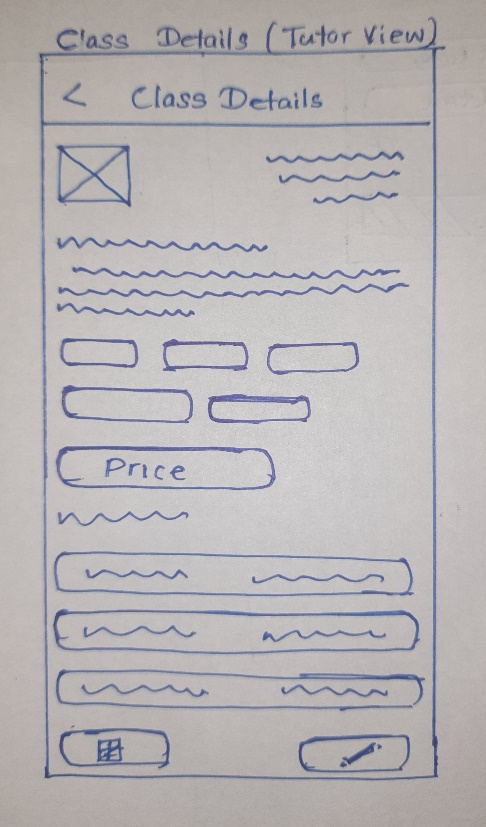 Class Details (Tutor View)
< Class Details
Price